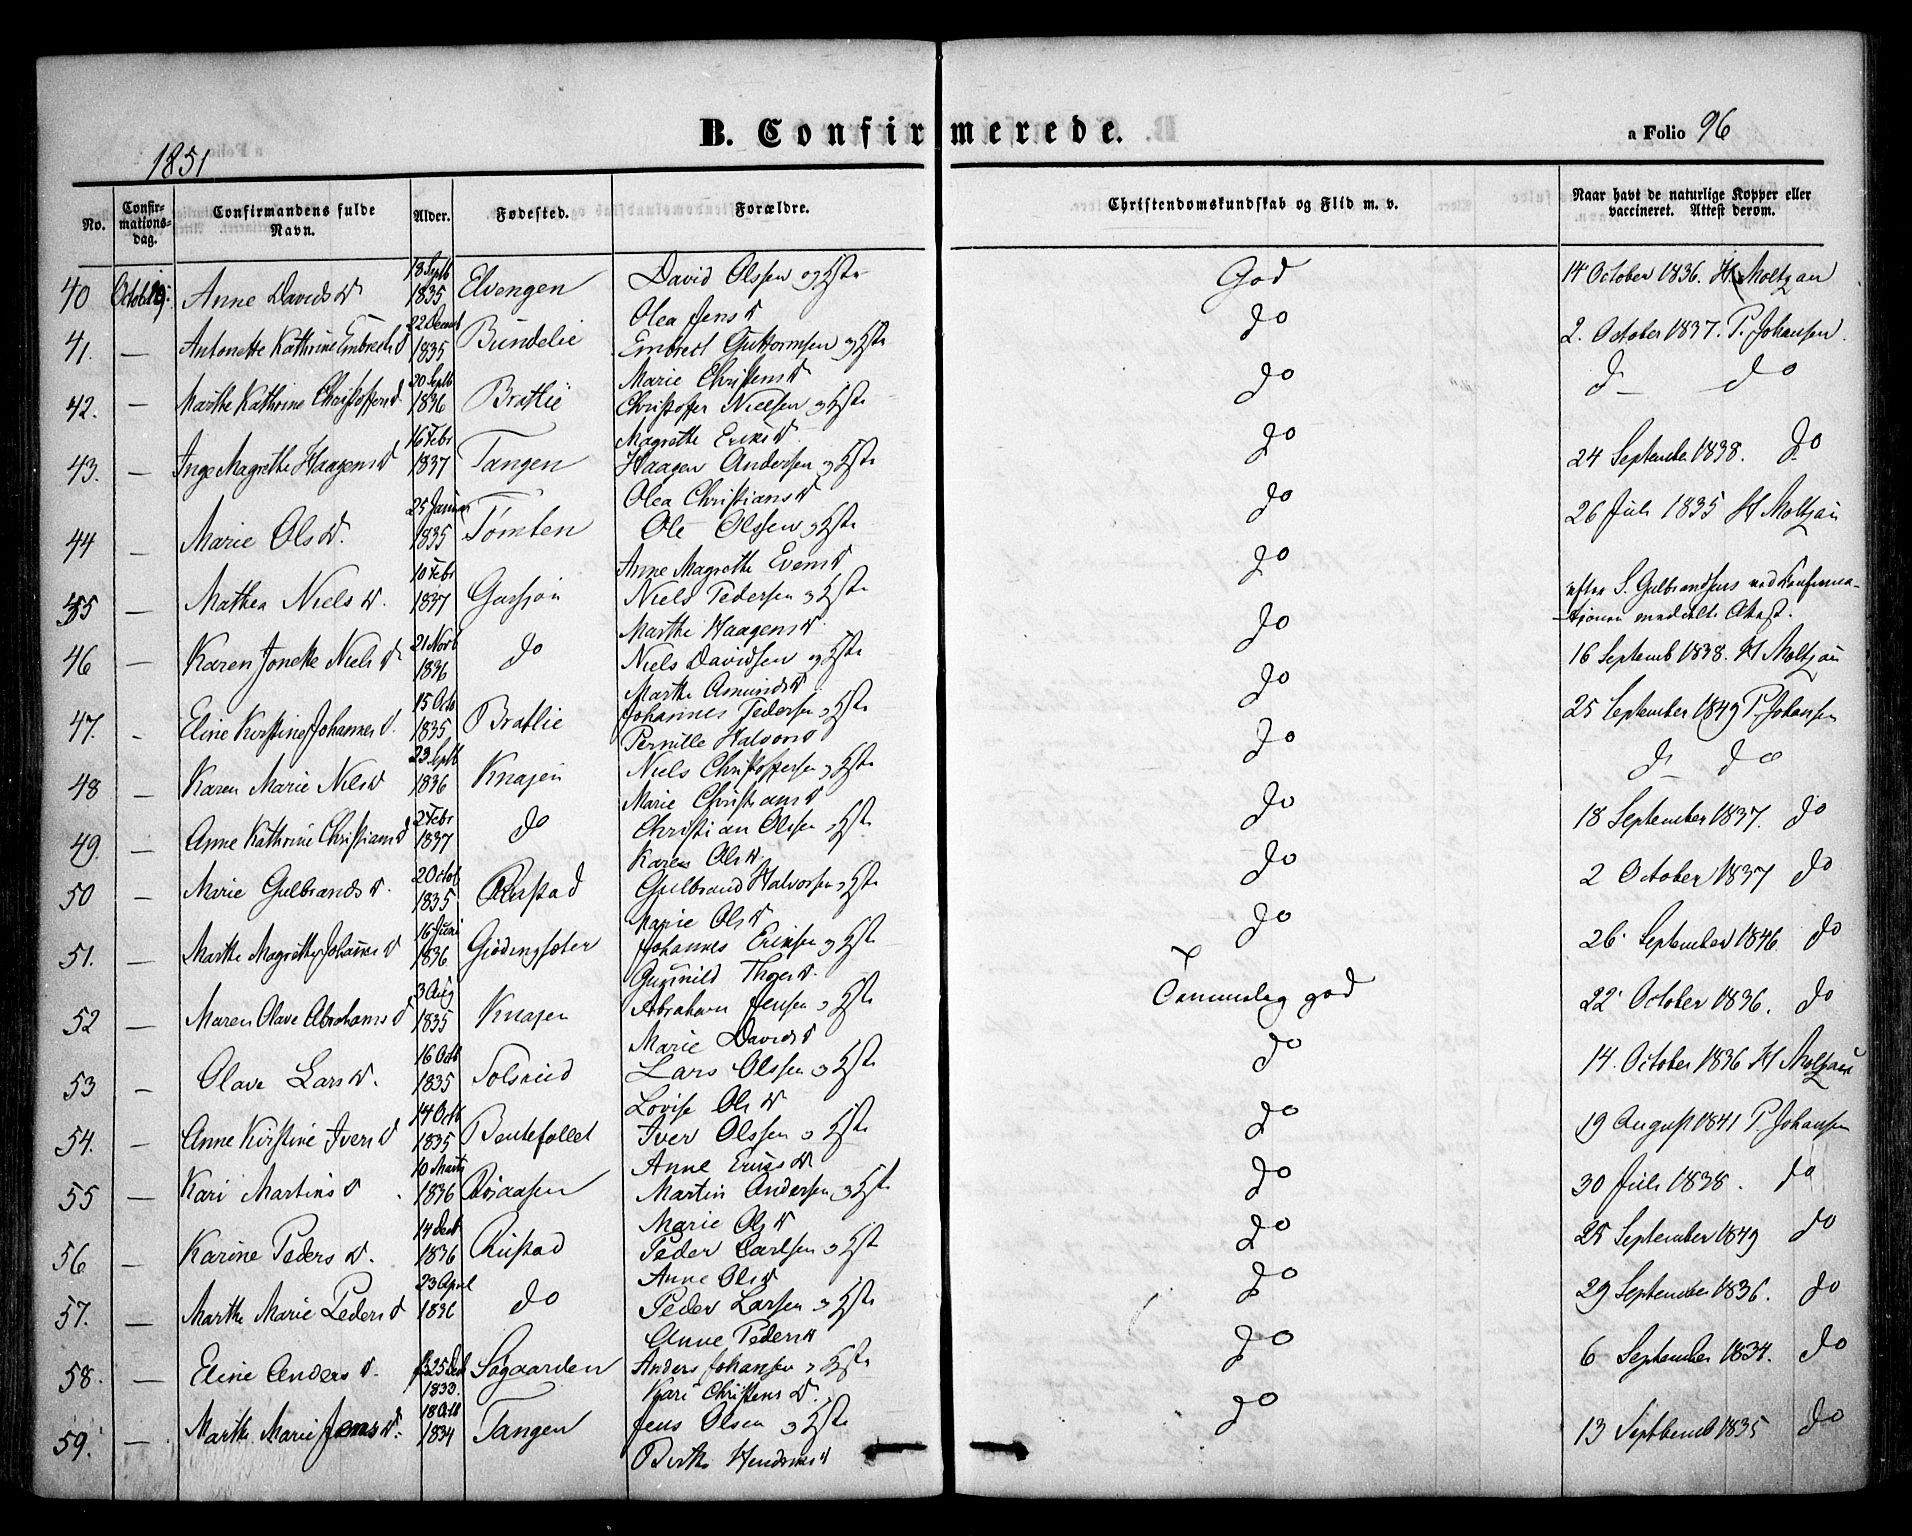 B. Confirmerede.
a Folio 96
1851
No. Confirmationsdag. Confirmandens fulde Navn. Alder. Fødested. Forældre. Christendomskundskab og Flid m. v. Naar havt de naturlige Kopper eller vaccineret. Attest derom.
40 Octob 19. Anne Davids D 18 Septb 1835 Elvengen David Olssen og Hst Olea Jens D God 14 October 1836. H. Moltzau
41. — Antonette Kathrine Embrets D 22 Decemb 1835 Bundelie Embret Guttormsen og Hst Marie Christens D do 2. October 1837. P. Johansen.
42. — Marthe Kathrine Christoffers D. 20 Septb 1836 Bratlie Christoffer Nielsen og Hst Magrethe Eriks D. do d— do
43. — Inge Magrethe Haagens D 16 Febr 1837 Tangen Haagen Andersen og Hst Olea Christians D do 24 September 1838. do
44 — Marie Ols D. 25 Januar 1835 Tomten Ole Olssen og Hst Anne Magrethe Evens D do 26 Juli 1835 H Moltzau
45 — Mathea Niels D. 10 Febr 1837 Garsjøn Niels Pedersen og Hst Marthe Haagens D. do efter S. Gulbrandsens ved Konfirmationen meddelte Attest.
46 — Karen Jonette Niels D 21 Novb 1836 do Niels Davidsen og Hst Marthe Asmunds D do 16 Septemb 1838. H Moltzau
47. - Eline Kirstine Johannes D. 15 Octo 1835 Bratlie Johannes Pedersen og Hst Pernille Halvors D do 25 September 1849 P. Johansen
48 — Karen Marie Niels D 23 Septb 1836 Knajen Niels Christoffersen og Hst Marie Christians D do d— do
49. — Anne Kathrine Christians D 2 Febr 1837 do Christian Olssen og Hst Karen Ols D do 18 September 1837. do
50 — Marie Gulbrands D. 2 Octob 1835 Gulbrand Halvorsen og Hst Marie Ols D do 2 October 1837 do
51. — Marthe Magrethe Johannes D 16 Juni 1836 Gjødingsæter Johannes Eriksen og Hst Gunnild Thoger D. do 26. September 1846 do
52 — Maren Olave Abrahams D 3 Aug 1835 Knajen Abraham Jensen og Hst Marie Davids D Temmelig god 22. October 1836. do
53 — Olave Lars D. 16 Octb 1835 Tolsrud Lars Olssen og Hst Lovise Ols D do 14. October 1836 H Moltzau
54. — Anne Kirstine Ivers D 14 Octb 1835 Beutefallet Iver Olssen og Hst Anne Eriks D do 19 August 1841 P. Johansen
55 — Kari Martins D. 10 Marts 1836 Braaasen Martin Andersen og Hst Marie Ols D do 30 Juli 1838. do
56 — Karine Peders D. 14 Decb 1836 Rustad Peder Carlsen og Hst Anne Ols D do 25 September 1849 do
57. — Marthe Marie Peders D 23 April 1836 do Peder Larsen og Hst Anne Peders D do 29 September 1836. do
58. — Eline Anders D. 25 Decb 1833. Sagaarden Anders Johansen og Hst Kari Christens D. do 6 September 1834. do
59. — Marthe Marie Jens D. 18 Octb 1834 Tangen Jens Olsen og Hst Berthe Hendriks D do 13 Septbemb 1835 do